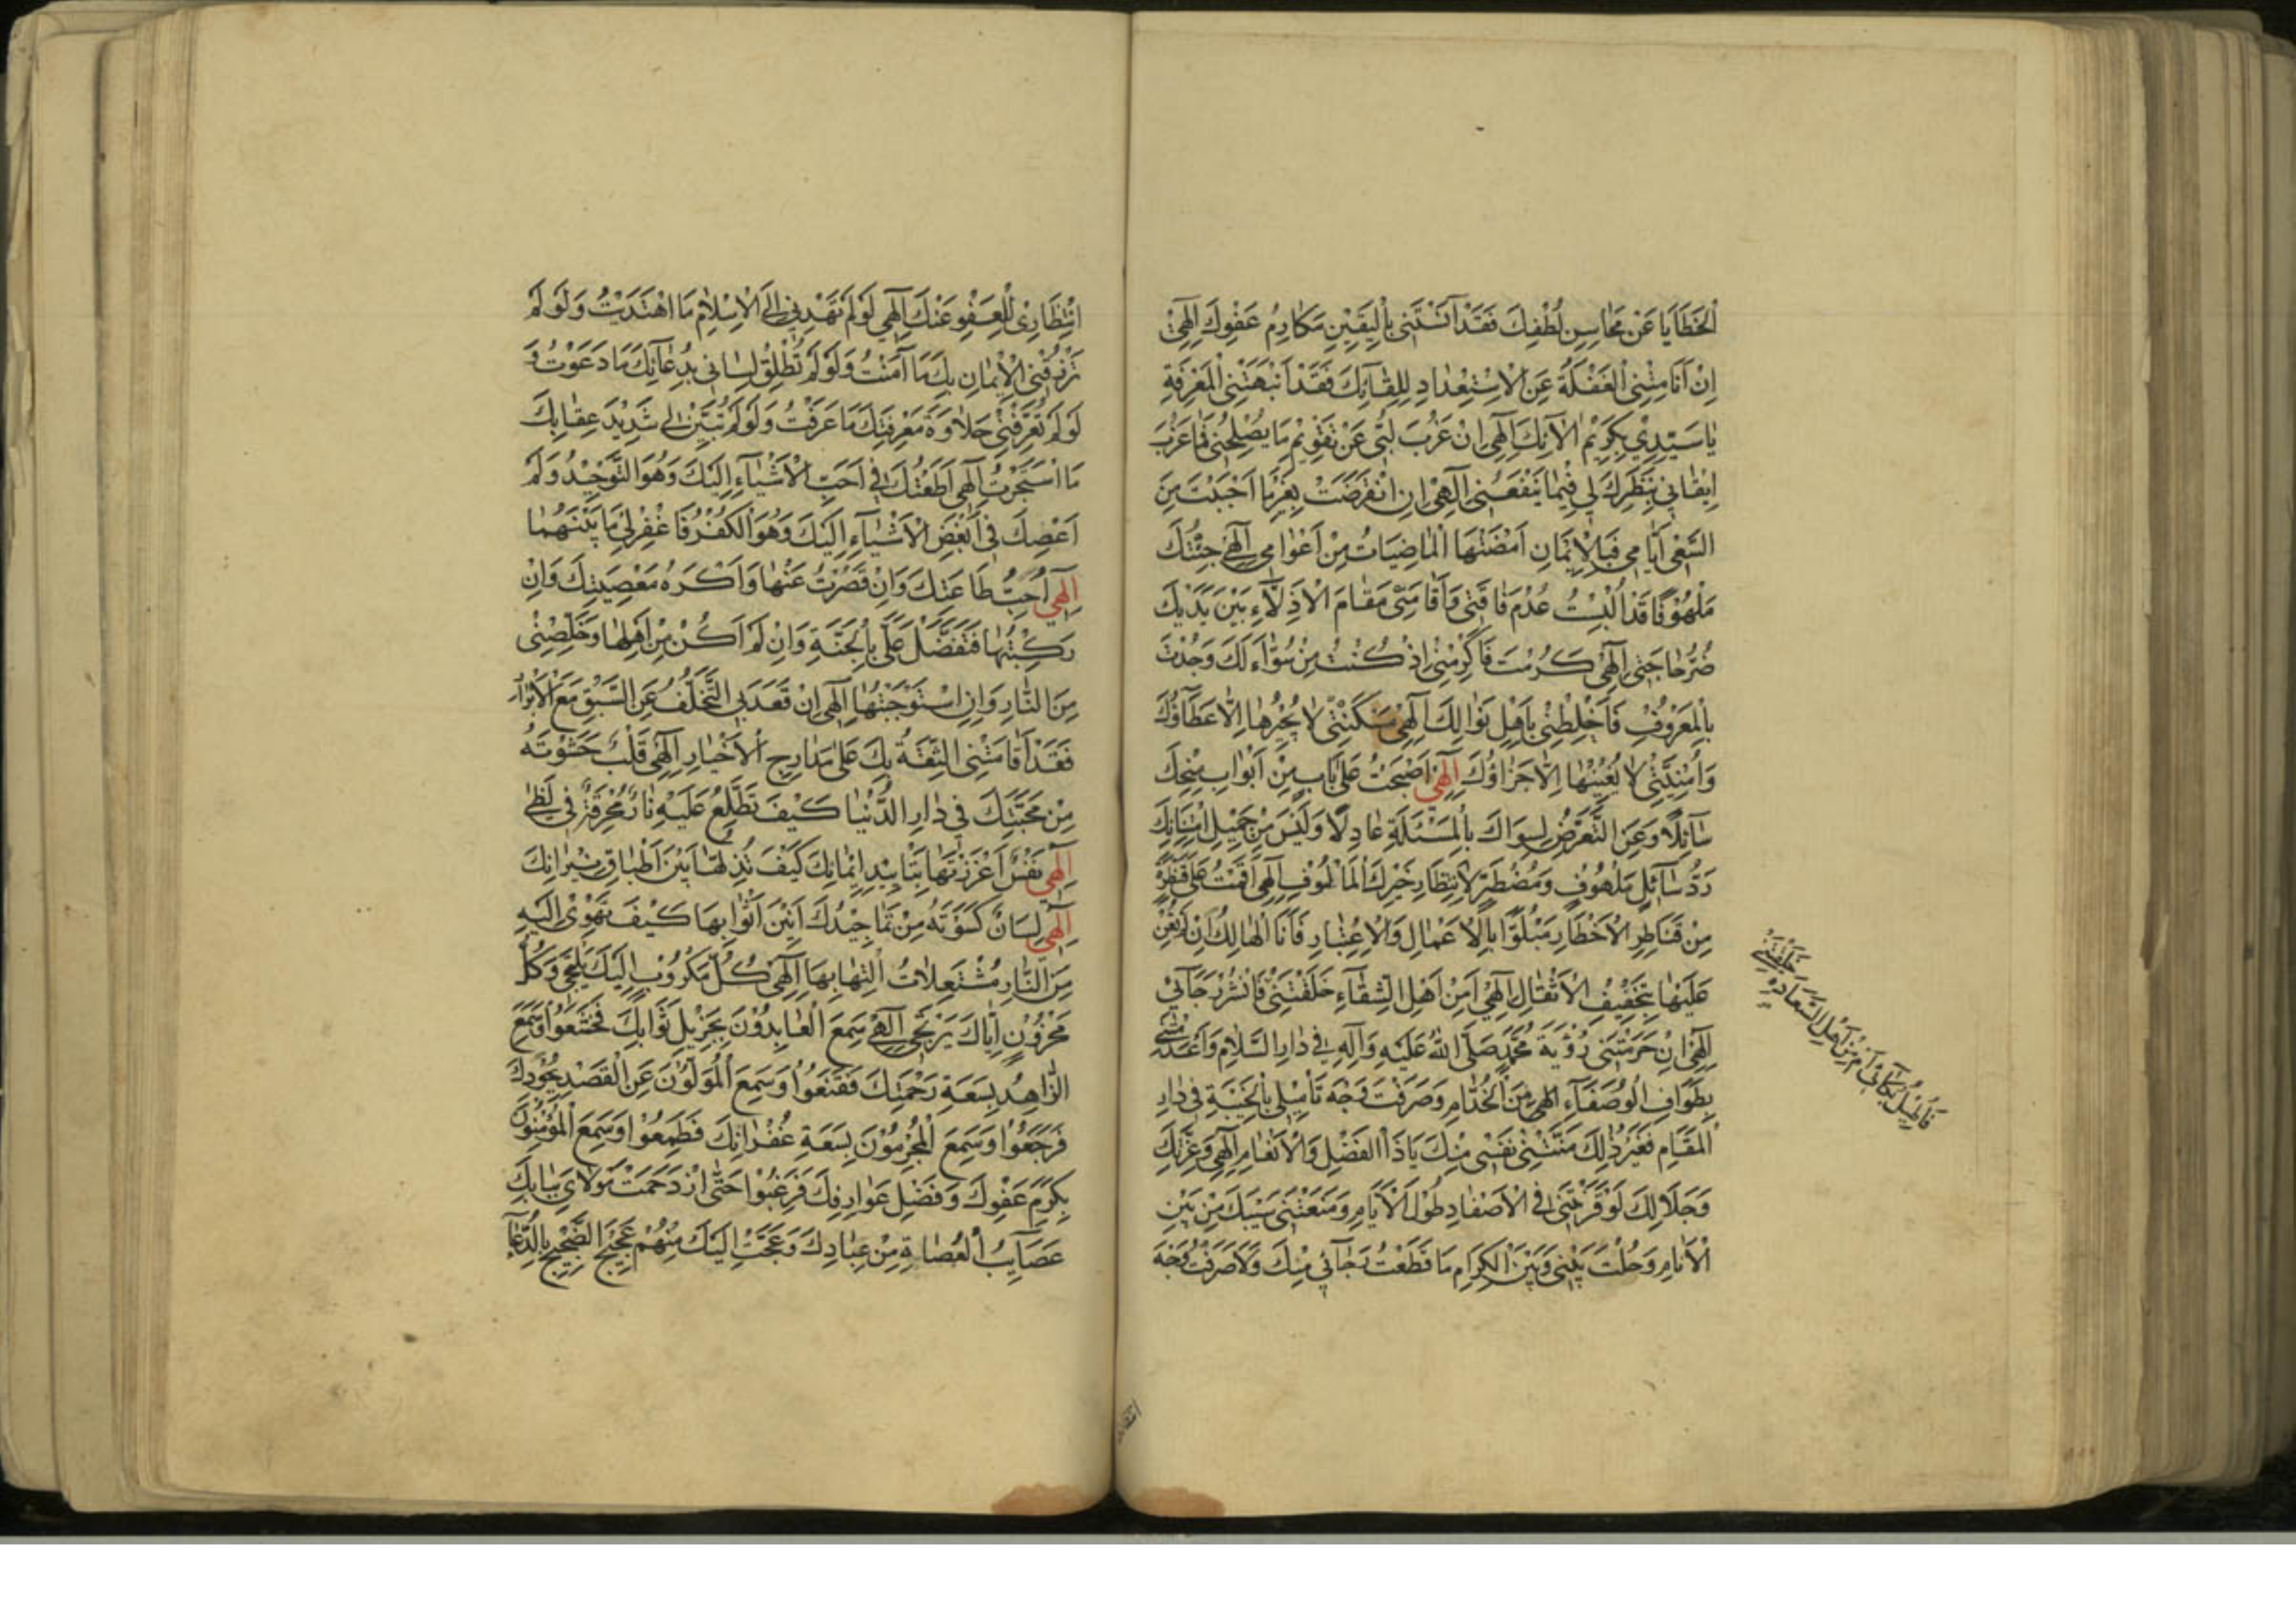 الْخَطَايَا عَنْ مَحَاسِنِ لُطْفِكَ فَقَدْ آنَسَتْنِي بِالْيَقِينِ مَكَارِمُ عَفْوِكَ إِلٰهِي
إِنْ أَنَامَتْنِي الْغَفْلَةُ عَنِ الْاِسْتِعْدَادِ لِلِقَائِكَ فَقَدْ أَنْبَهَتْنِي الْمَعْرِفَةِ
يَا سَيِّدِي بِكَرِيمِ آلَائِكَ إِلٰهِي إِنْ عَزُبَ لُبِّي عَنْ تَقْوِيمِ مَا يُصْلِحُنِي فَمَا عَزُبَ
إِيقَانِي بِنَظَرِكَ لِي فِيمَا يَنْفَعُنِي إِلٰهِي إِنِ انْقَرَضَتْ بِغَيْرِ مَا أَحْبَبْتَ مِنَ
السَّعْيِ أَيَّامِي فَبِالْإِيمَانِ أَمْضَتْهَا الْمَاضِيَاتُ مِنْ أَعْوَامِي إِلٰهِي جِئْتُكَ
مَلْهُوفًا قَدْ أُلْبِسْتُ عُدْمَ فَاقَتِي وَأَقَامَنِي مَقَامَ الْأَذِلَّاءِ بَيْنَ يَدَيْكَ
ضُرُّ حَاجَتِي إِلٰهِي كَرُمْتَ فَأَكْرِمْنِي إِذْ كُنْتُ مِنْ سُؤَّالِكَ وَجُدْتَ
بِالْمَعْرُوفِ فَاخْلِطْنِي بِأَهْلِ نَوَالِكَ إِلٰهِي مَسْكَنَتِي لَا يَجْبُرُهَا إِلَّا عَطَاؤُكَ
وَأُمْنِيَّتِي لَا يُغْنِيهَا إِلَّا جَزَاؤُكَ إِلٰهِي أَصْبَحْتُ عَلَى بَابٍ مِنْ أَبْوَابِ مِنَحِكَ
سَائِلًا وَعَنِ التَّعَرُّضِ لِسِوَاكَ بِالْمَسْئَلَةِ عَادِلًا وَلَيْسَ مِنْ جَمِيلِ امْتِنَانِكَ
رَدُّ سَائِلٍ مَلْهُوفٍ وَمُضْطَرٍّ لِانْتِظَارِ خَيْرِكَ الْمَأْلُوفِ إِلٰهِي أَقَمْتُ عَلَى قَنْطَرَةٍ
مِنْ قَنَاطِرِ الْأَخْطَارِ مَبْلُوًّا بِالْأَعْمَالِ وَالْاِعْتِبَارِ فَأَنَا الْهَالِكُ إِنْ لَمْ تُعِنْ
عَلَيْهَا بِتَخْفِيفِ الْأَثْقَالِ إِلٰهِي أَمِنْ أَهْلِ الشَّقَاءِ خَلَقْتَنِي فَانْشُرْ رَجَائِي
إِلٰهِي إِنْ حَرَمْتَنِي رُؤْيَةَ مُحَمَّدٍ صَلَّى اللهُ عَلَيْهِ وَآلِهِ فِي دَارِ السَّلَامِ وَأَعْدَمْتَنِي
تَطْوَافَ الْوُصَفَاءِ إِلٰهِي مِنَ الْخُدَّامِ وَصَرَفْتَ وَجْهَ تَأْمِيلِي بِالْخَيْبَةِ فِي دَارِ
الْمُقَامِ فَغَيْرُ ذٰلِكَ مَنَّتْنِي نَفْسِي مِنْكَ يَا ذَا الْفَضْلِ وَالْأَنْعَامِ إِلٰهِي وَعِزَّتِكَ
وَجَلَالِكَ لَوْ قَرَنْتَنِي فِي الْأَصْفَادِ طُولَ الْأَيَّامِ وَمَنَعْتَنِي سَيْبَكَ مِنْ بَيْنِ
الْأَنَامِ وَحُلْتَ بَيْنِي وَبَيْنَ الْكِرَامِ مَا قَطَعْتُ رَجَائِي مِنْكَ وَلَا صَرَفْتُ وَجْهَ
خَلَقْتَنِي
فَأُطِيلُ بُكَائِي أَمْ مِنْ أَهْلِ السَّعَادَةِ
انْتِظَارِي لِلْعَفْوِ عَنْكَ إِلٰهِي لَوْ لَمْ تَهْدِنِي إِلَى الْإِسْلَامِ مَا اهْتَدَيْتُ وَلَوْ لَمْ
تَرْزُقْنِي الْإِيمَانَ بِكَ مَا آمَنْتُ وَلَوْ لَمْ تُطْلِقْ لِسَانِي بِدُعَائِكَ مَا دَعَوْتُ وَ
لَوْ لَمْ تُعَرِّفْنِي حَلَاوَةَ مَعْرِفَتِكَ مَا عَرَفْتُ وَلَوْ لَمْ تُبَيِّنْ لِي شَدِيدَ عِقَابِكَ
مَا اسْتَجَرْتُ إِلٰهِي أَطَعْتُكَ فِي أَحَبِّ الْأَشْيَاءِ إِلَيْكَ وَهُوَ التَّوْحِيدُ وَلَمْ
أَعْصِكَ فِي أَبْغَضِ الْأَشْيَاءِ إِلَيْكَ وَهُوَ الْكُفْرُ فَاغْفِرْ لِي مَا بَيْنَهُمَا
إِلٰهِي أُحِبُّ طَاعَتَكَ وَإِنْ قَصُرْتُ عَنْهَا وَأَكْرَهُ مَعْصِيَتَكَ وَإِنْ
رَكِبْتُهَا فَتَفَضَّلْ عَلَيَّ بِالْجَنَّةِ وَإِنْ لَمْ أَكُنْ مِنْ أَهْلِهَا وَخَلِّصْنِي
مِنَ النَّارِ وَإِنِ اسْتَوْجَبْتُهَا إِلٰهِي إِنْ قَعَدَ بِي التَّخَلُّفُ عَنِ السَّبْقِ مَعَ الْأَبْرَارِ
فَقَدْ أَقَامَتْنِي الثِّقَةُ بِكَ عَلَى مَدَارِجِ الْأَخْيَارِ إِلٰهِي قَلْبٌ حَشَوْتَهُ
مِنْ مَحَبَّتِكَ فِي دَارِ الدُّنْيَا كَيْفَ تَطَّلِعُ عَلَيْهِ نَارٌ مُحْرِقَةٌ فِي لَظَى
إِلٰهِي نَفْسٌ أَعْزَزْتَهَا بِتَأْيِيدِ إِيمَانِكَ كَيْفَ تُذِلُّهَا بَيْنَ أَطْبَاقِ نِيرَانِكَ
إِلٰهِي لِسَانٌ كَسَوْتَهُ مِنْ تَمَاجِيدِكَ أَنِيقَ أَثْوَابِهَا كَيْفَ تَهْوِي إِلَيْهِ
مِنَ النَّارِ مُشْتَعِلَاتُ الْتِهَابِهَا إِلٰهِي كُلُّ مَكْرُوبٍ إِلَيْكَ يَلْتَجِي وَكُلُّ
مَحْزُونٍ إِيَّاكَ يَرْتَجِي إِلٰهِي سَمِعَ الْعَابِدُونَ بِجَزِيلِ ثَوَابِكَ فَخَشَعُوا وَسَمِعَ
الزَّاهِدُ بِسَعَةِ رَحْمَتِكَ فَقَنَعُوا وَسَمِعَ الْمُوَلُّونَ عَنِ الْقَصْدِ بِجُودِكَ
فَرَجَعُوا وَسَمِعَ الْمُجْرِمُونَ بِسَعَةِ غُفْرَانِكَ فَطَمِعُوا وَسَمِعَ الْمُؤْمِنُونَ
بِكَرَمِ عَفْوِكَ وَفَضْلِ عَوَارِفِكَ فَرَغِبُوا حَتَّى ازْدَحَمَتْ مَوْلَايَ بِبَابِكَ
عَصَائِبُ الْعُصَاةِ مِنْ عِبَادِكَ وَعَجَّتْ إِلَيْكَ مِنْهُمْ عَجِيجَ الضَّجِيجِ بِالدُّعَاءِ